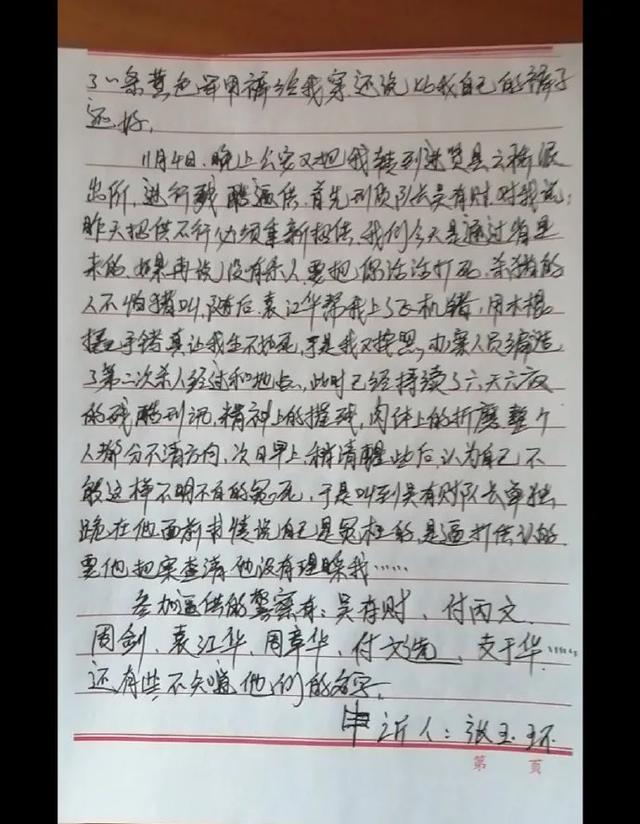 了一条黄色军用裤给我穿还说比我自己的裤子
还好。
11月4日.晚上公安又把我转到进贤县云桥派
出所,进行残酷逼供.首先刑侦队长吴有财对我说:
昨天招供不行必须重新招供,我们今天是通过省里
来的.如果再说没有杀人要把你活活打死.杀猪的
人不怕猪叫,随后.袁江华帮我上了飞机铐,用木棍
手铐真让我生不如死,于是我又按照办案人员编造
了第二次杀人经过和地点.此时已经持续了六天六夜
的残酷刑讯.精神上的摧残,肉体上的折磨整个
人都分不清方向,次日早上,稍清醒些后.认为自己不
能这样不明不白的冤死,于是叫到吴有财队长单独
跪在他面前求情说自己是冤枉的.是逼打供认的
要他把案查清.他没有理睬我……
参加逼供的警察有:吴有财、付丙文
周剑、袁江华、周章华、付文选、支于华……
还有些不知道他们的名字。
申诉人:张玉环
第 页